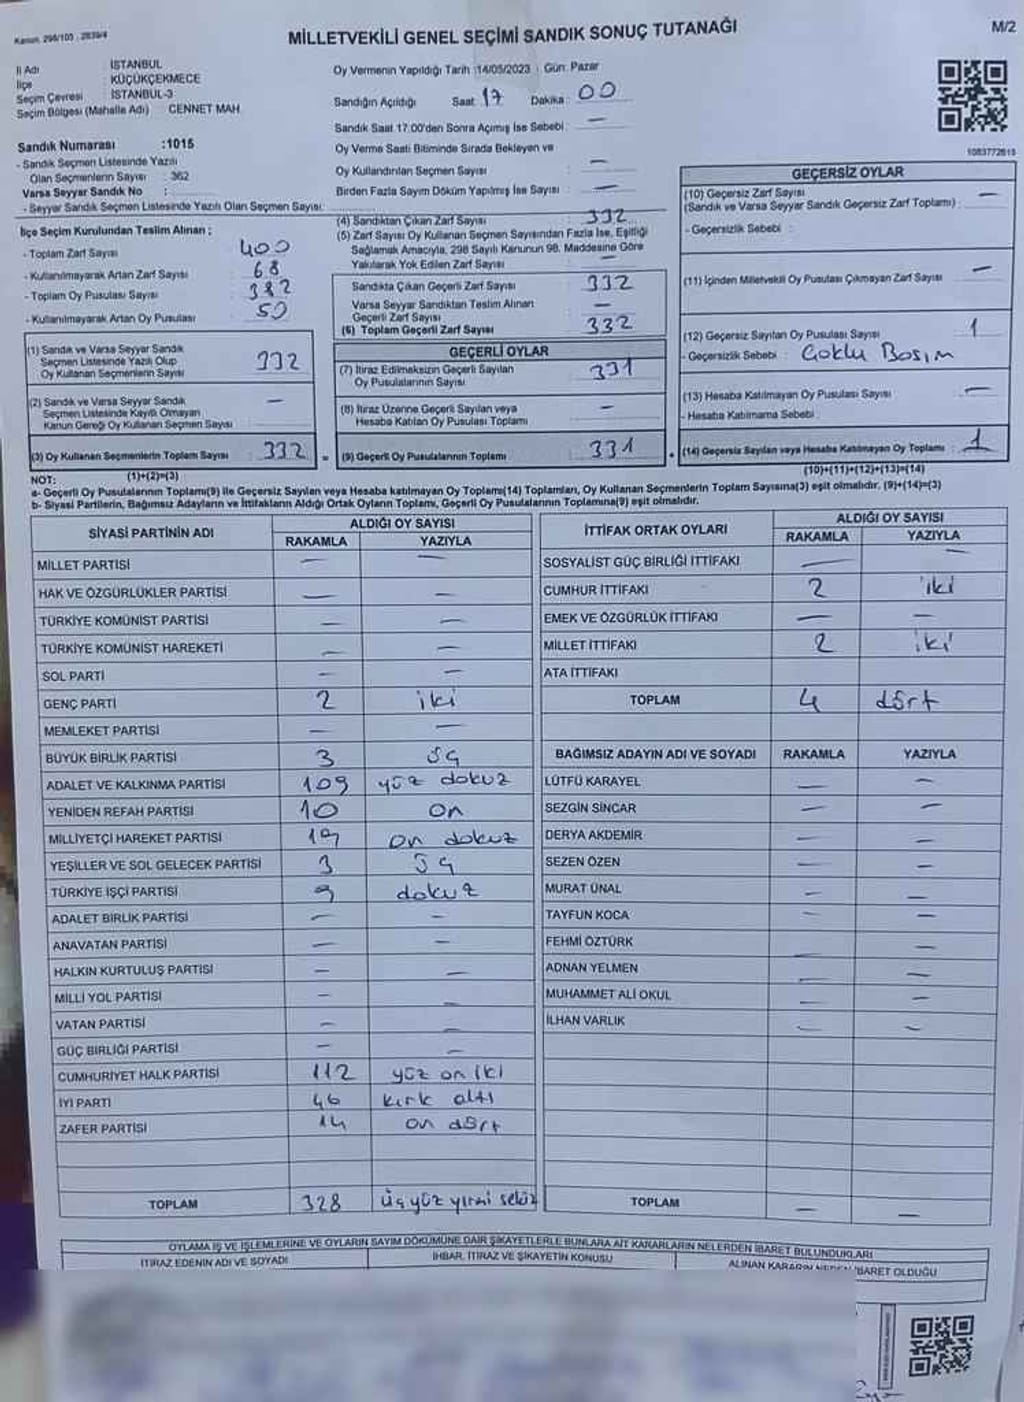 Kanun: 298/105 , 2839/4
MİLLETVEKİLİ GENEL SEÇİMİ SANDIK SONUÇ TUTANAĞI
M/2
İl Adı : İSTANBUL
İlçe : KÜÇÜKÇEKMECE
Seçim Çevresi : İSTANBUL-3
Seçim Bölgesi (Mahalle Adı) : CENNET MAH.
Sandık Numarası :1015
- Sandık Seçmen Listesinde Yazılı
Olan Seçmenlerin Sayısı : 362
Varsa Seyyar Sandık No :
- Seyyar Sandık Seçmen Listesinde Yazılı Olan Seçmen Sayısı:
İlçe Seçim Kurulundan Teslim Alınan :
- Toplam Zarf Sayısı 400
- Kullanılmayarak Artan Zarf Sayısı 68
- Toplam Oy Pusulası Sayısı 382
- Kullanılmayarak Artan Oy Pusulası 50
(1) Sandık ve Varsa Seyyar Sandık
Seçmen Listesinde Yazılı Olup
Oy Kullanan Seçmenlerin Sayısı 332
(2) Sandık ve Varsa Seyyar Sandık
Seçmen Listesinde Kayıtlı Olmayan
Kanun Gereği Oy Kullanan Seçmen Sayısı —
(3) Oy Kullanan Seçmenlerin Toplam Sayısı 332 =
(1)+(2)=(3)
Oy Vermenin Yapıldığı Tarih :14/05/2023 Gün: Pazar
Sandığın Açıldığı Saat 17 Dakika : 00
Sandık Saat 17.00'den Sonra Açımış İse Sebebi : —
Oy Verme Saati Bitiminde Sırada Bekleyen ve
Oy Kullandırılan Seçmen Sayısı : —
Birden Fazla Sayım Döküm Yapılmış İse Sayısı : —
(4) Sandıktan Çıkan Zarf Sayısı : 332
(5) Zarf Sayısı Oy Kullanan Seçmen Sayısından Fazla İse, Eşitliği
Sağlamak Amacıyla, 298 Sayılı Kanunun 98. Maddesine Göre
Yakılarak Yok Edilen Zarf Sayısı —
Sandıkta Çıkan Geçerli Zarf Sayısı 332
Varsa Seyyar Sandıktan Teslim Alınan
Geçerli Zarf Sayısı —
(6) Toplam Geçerli Zarf Sayısı 332
GEÇERLİ OYLAR
(7) İtiraz Edilmeksizin Geçerli Sayılan
Oy Pusulalarının Sayısı 331
(8) İtiraz Üzerine Geçerli Sayılan veya
Hesaba Katılan Oy Pusulası Toplamı —
(9) Geçerli Oy Pusulalarının Toplamı 331 +
1083772615
GEÇERSİZ OYLAR
(10) Geçersiz Zarf Sayısı —
(Sandık ve Varsa Seyyar Sandık Geçersiz Zarf Toplamı) :
- Geçersizlik Sebebi :
(11) İçinden Milletvekili Oy Pusulası Çıkmayan Zarf Sayısı —
(12) Geçersiz Sayılan Oy Pusulası Sayısı 1
- Geçersizlik Sebebi : Çoklu Basım
(13) Hesaba Katılmayan Oy Pusulası Sayısı —
- Hesaba Katılmama Sebebi :
(14) Geçersiz Sayılan veya Hesaba Katılmayan Oy Toplamı 1
(10)+(11)+(12)+(13)=(14)
NOT:
a- Geçerli Oy Pusulalarının Toplamı(9) ile Geçersiz Sayılan veya Hesaba katılmayan Oy Toplamı(14) Toplamları, Oy Kullanan Seçmenlerin Toplam Sayısına(3) eşit olmalıdır. (9)+(14)=(3)
b- Siyasi Partilerin, Bağımsız Adayların ve İttifakların Aldığı Ortak Oyların Toplamı, Geçerli Oy Pusulalarının Toplamına(9) eşit olmalıdır.
SİYASİ PARTİNİN ADI ALDIĞI OY SAYISI
RAKAMLA YAZIYLA
MİLLET PARTİSİ — —
HAK VE ÖZGÜRLÜKLER PARTİSİ — —
TÜRKİYE KOMÜNİST PARTİSİ — —
TÜRKİYE KOMÜNİST HAREKETİ — —
SOL PARTİ — —
GENÇ PARTİ 2 iki
MEMLEKET PARTİSİ — —
BÜYÜK BİRLİK PARTİSİ 3 üç
ADALET VE KALKINMA PARTİSİ 109 yüz dokuz
YENİDEN REFAH PARTİSİ 10 on
MİLLİYETÇİ HAREKET PARTİSİ 19 on dokuz
YEŞİLLER VE SOL GELECEK PARTİSİ 3 üç
TÜRKİYE İŞÇİ PARTİSİ 9 dokuz
ADALET BİRLİK PARTİSİ — —
ANAVATAN PARTİSİ — —
HALKIN KURTULUŞ PARTİSİ — —
MİLLİ YOL PARTİSİ — —
VATAN PARTİSİ — —
GÜÇ BİRLİĞİ PARTİSİ — —
CUMHURİYET HALK PARTİSİ 112 yüz on iki
İYİ PARTİ 46 kırk altı
ZAFER PARTİSİ 14 on dört
TOPLAM 328 üç yüz yirmi sekiz
İTTİFAK ORTAK OYLARI ALDIĞI OY SAYISI
RAKAMLA YAZIYLA
SOSYALİST GÜÇ BİRLİĞİ İTTİFAKI — —
CUMHUR İTTİFAKI 2 iki
EMEK VE ÖZGÜRLÜK İTTİFAKI — —
MİLLET İTTİFAKI 2 iki
ATA İTTİFAKI
TOPLAM 4 dört
BAĞIMSIZ ADAYIN ADI VE SOYADI RAKAMLA YAZIYLA
LÜTFÜ KARAYEL — —
SEZGİN SİNCAR — —
DERYA AKDEMİR — —
SEZEN ÖZEN — —
MURAT ÜNAL — —
TAYFUN KOCA — —
FEHMİ ÖZTÜRK — —
ADNAN YELMEN — —
MUHAMMET ALİ OKUL — —
İLHAN VARLIK — —
TOPLAM — —
OYLAMA İŞ VE İŞLEMLERİNE VE OYLARIN SAYIM DÖKÜMÜNE DAİR ŞİKAYETLERLE BUNLARA AİT KARARLARIN NELERDEN İBARET BULUNDUKLARI
İTİRAZ EDENİN ADI VE SOYADI İHBAR, İTİRAZ VE ŞİKAYETİN KONUSU ALINAN KARARIN NEDEN İBARET OLDUĞU